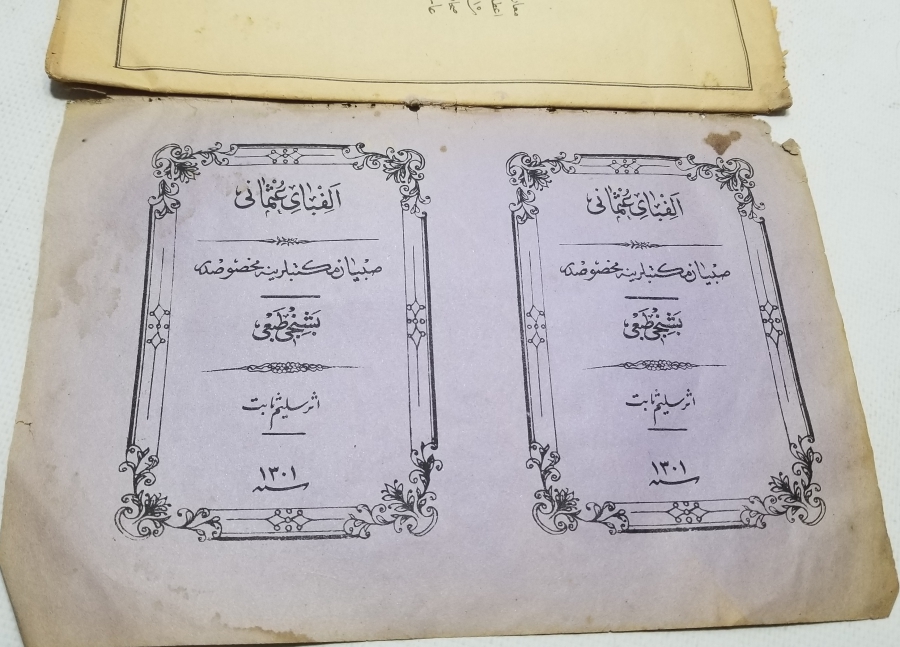 اَلِفْبَایِ عُثْمَانِی
صبیان مكتبلرینه مخصوصدر
بَشِنْجِی طَبْعِی
اثر سلیم ثابت
١٣٠١
سنه
اَلِفْبَایِ عُثْمَانِی
صبیان مكتبلرینه مخصوصدر
بَشِنْجِی طَبْعِی
اثر سلیم ثابت
١٣٠١
سنه